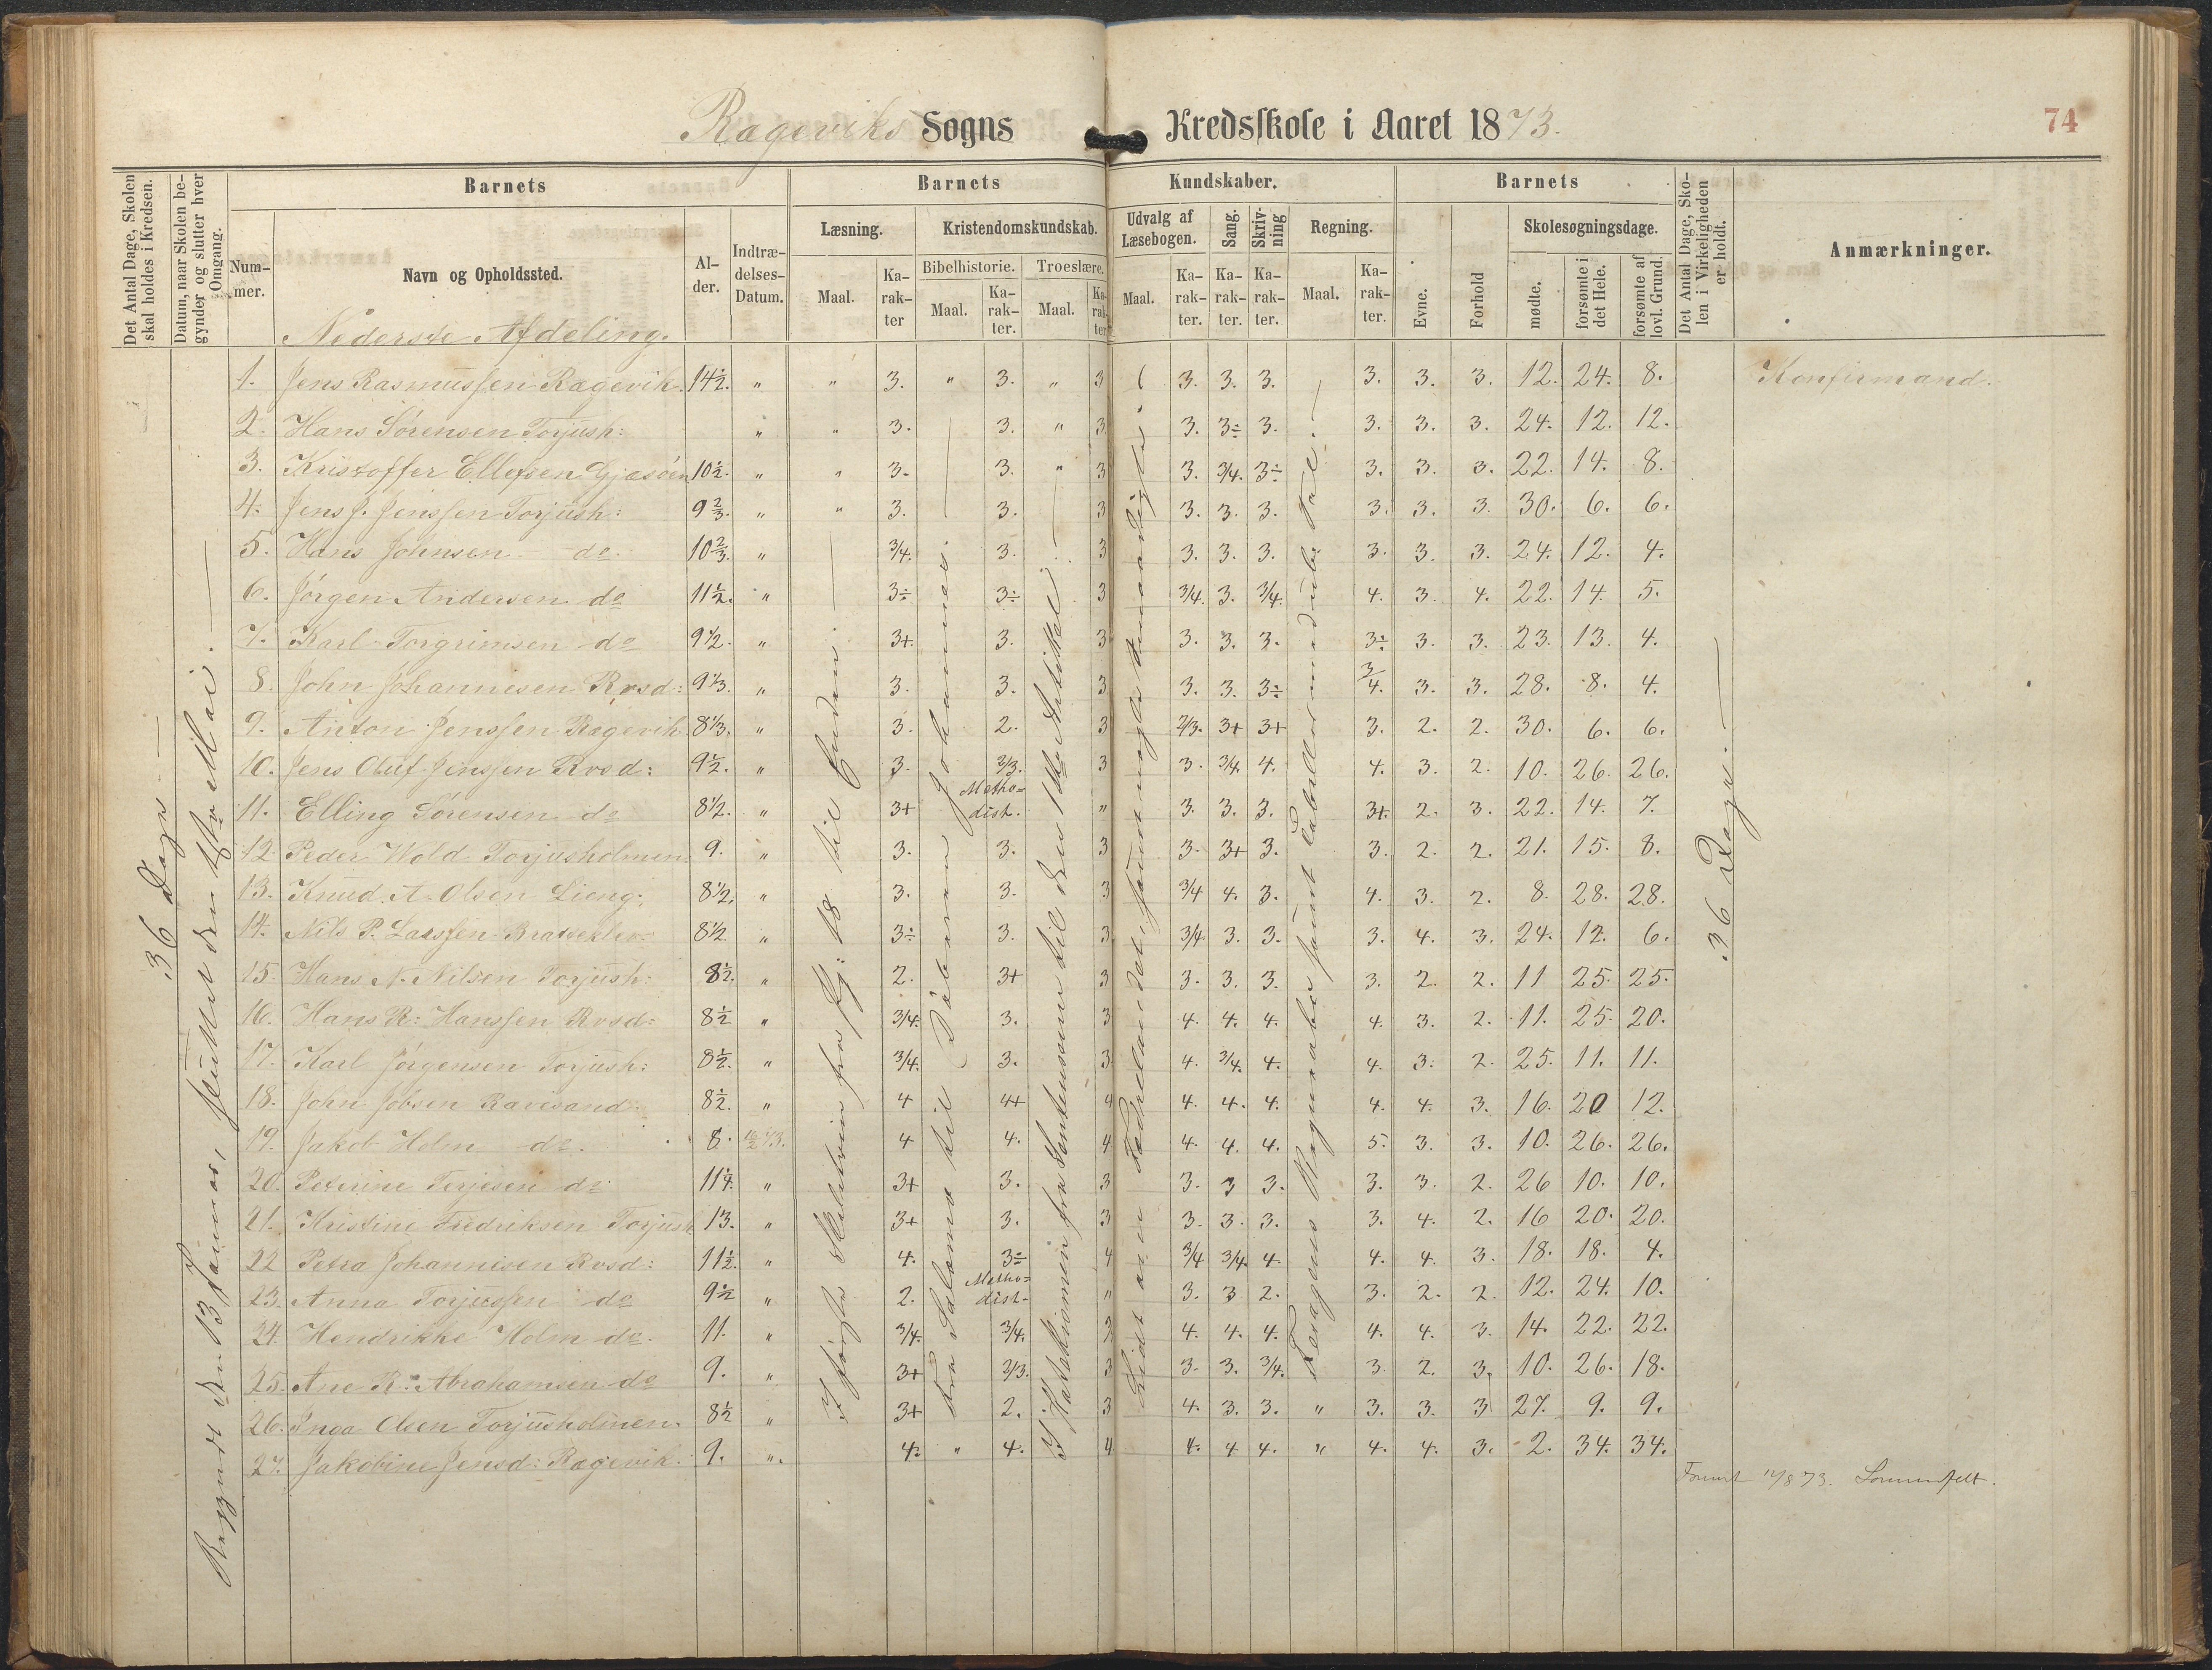 Rageviks Sogns Kredsskole i Aaret 1873.
74
Det Antal Dage, Skolen skal holdes i Kredsen.
Datum, naar Skolen begynder og slutter hver Omgang.
Barnets
Barnets
Kundskaber.
Barnets
Det Antal Dage, Skolen i Virkeligheden er holdt.
Anmærkninger.
Nummer.
Navn og Opholdssted.
Alder.
Indtrædelses-Datum.
Læsning.
Kristendomskundskab.
Udvalg af Læsebogen.
Sang.
Skrivning
Regning.
Evne.
Forhold
Skolesøgningsdage.
Bibelhistorie.
Troeslære.
Maal.
Karakter
Maal.
Karakter.
Maal.
Karakter
Maal.
Karakter.
Karakter.
Karakter.
Maal.
Karakter.
mødte.
forsømte i det Hele.
forsømte af lovl. Grund.
Nederste Afdeling.
36 Dage
Begyndt den 13 Januar, sluttet den 1ste Mai.
til Enden.
Fra Salomo til Johannes
I Katekismen fra til den 1ste Artikel.
36 Dage.
1. Jens Rasmussen Ragevik. 14½. " " 3. " 3. " 3 3. 3. 3. 3. 3. 3. 12. 24. 8. Konfirmand.
2. Hans Sörensen Torjush: " " 3. 3. " 3 3. 3÷ 3. 3. 3. 3. 24. 12. 12.
3. Kristoffer Ellefsen Gjæsöen 10½. " " 3. 3. " 3 3. 3/4. 3÷ 3. 3. 3. 22. 14. 8.
4. Jens J. Jenssen Torjush: 9⅔. " " 3. 3. 3 3. 3. 3. 3. 3. 3. 30. 6. 6.
5. Hans Johnsen do. 10⅔. " 3/4. 3. 3 3. 3. 3. 3. 3. 3. 24. 12. 4.
6. Jörgen Andersen do 11½. " 3÷ 3÷ 3 3/4. 3. 3/4. 4. 3. 4. 22. 14. 5.
7. Karl Torgrimsen do 9½. " 3+ 3. 3 3. 3. 3. 3÷ 3. 3. 23. 13. 4.
8. John Johannesen Rosd: 9⅓. " 3. 3. 3 3. 3. 3÷ 3/4. 3. 3. 28. 8. 4.
9. Anton Jenssen Ragevik 8⅓. " 3. 2. 3 2/3. 3+ 3+ 3. 2. 2. 30. 6. 6.
10. Jens Oluf Jenssen Rosd: 9½. " 3. 2/3. 3 3. 3/4. 4. 4. 3. 2. 10. 26. 26.
11. Elling Sörensen do 8½. " 3+ Methodist. " 3. 3. 3. 3+. 2. 3. 22. 14. 7.
12. Peder Wold Torjusholmen 9. " 3. 3. 3 3. 3+ 3. 3. 2. 2. 21. 15. 8.
13. Knud A. Olsen Lieng: 8½. " 3. 3. 3 3/4 4. 3. 4. 3. 2. 8. 28. 28.
14. Nils P. Larssen 8½. " 3÷ 3. 3 3/4. 3. 3. 3. 4. 3. 24. 12. 6.
15. Hans N. Nilsen Torjush: 8½. " 2. 3+ 3 3. 3. 3. 3. 2. 2. 11 25. 25.
16. Hans R: Hanssen Rosd: 8½ " 3/4. 3. 3 4. 4. 4. 4. 3. 2. 11. 25. 20.
17. Karl Jörgensen Torjush: 8½. " 3/4. 3. 3 4. 3/4. 4. 4. 3. 2. 25. 11. 11.
18. John Jobsen Ravesand 8½. " 4 4+ 4 4. 4. 4. 4. 4. 3. 16. 20 12.
19. Jakob Holm do. 8. 4 4. 4 4. 4. 4. 5. 3. 3. 10. 26. 26.
20. Peterine Terjesen do 11¼. " 3+ 3. 3 3. 3 3. 3. 3. 2. 26 10. 10.
21. Kristine Fredriksen Torjush 13. " 3+ 3. 3 3. 3. 3. 3. 4. 2. 16 20. 20.
22 Petra Johannesen Rosd: 11½. " 4. 3÷ 4 3/4 3/4. 4. 4. 4. 3. 18. 18. 4.
23. Anna Torjussen do 9½ " 2. Methodist. " 3. 3 2. 3. 2. 2. 12. 24. 10.
24. Hendrikke Holm do. 11. " 3/4. 3/4. 4. 4. 4. 4. 4. 3. 14. 22. 22.
25. Ane R. Abrahamsen do 9. " 3+ 2/3. 3 3. 3. 3/4. 3. 2. 3. 10. 26. 18.
26. Inga Olsen Torjusholmen. 8½ " 3+ 2. 3 4. 3. 3. " 3. 3. 3 27. 9. 9.
27. Jakobine Jensd: Ragevik. 9. " 4. " 4. 4 4. 4 4. " 4. 4. 3. 2. 34. 34.
73. Sommerfelt.